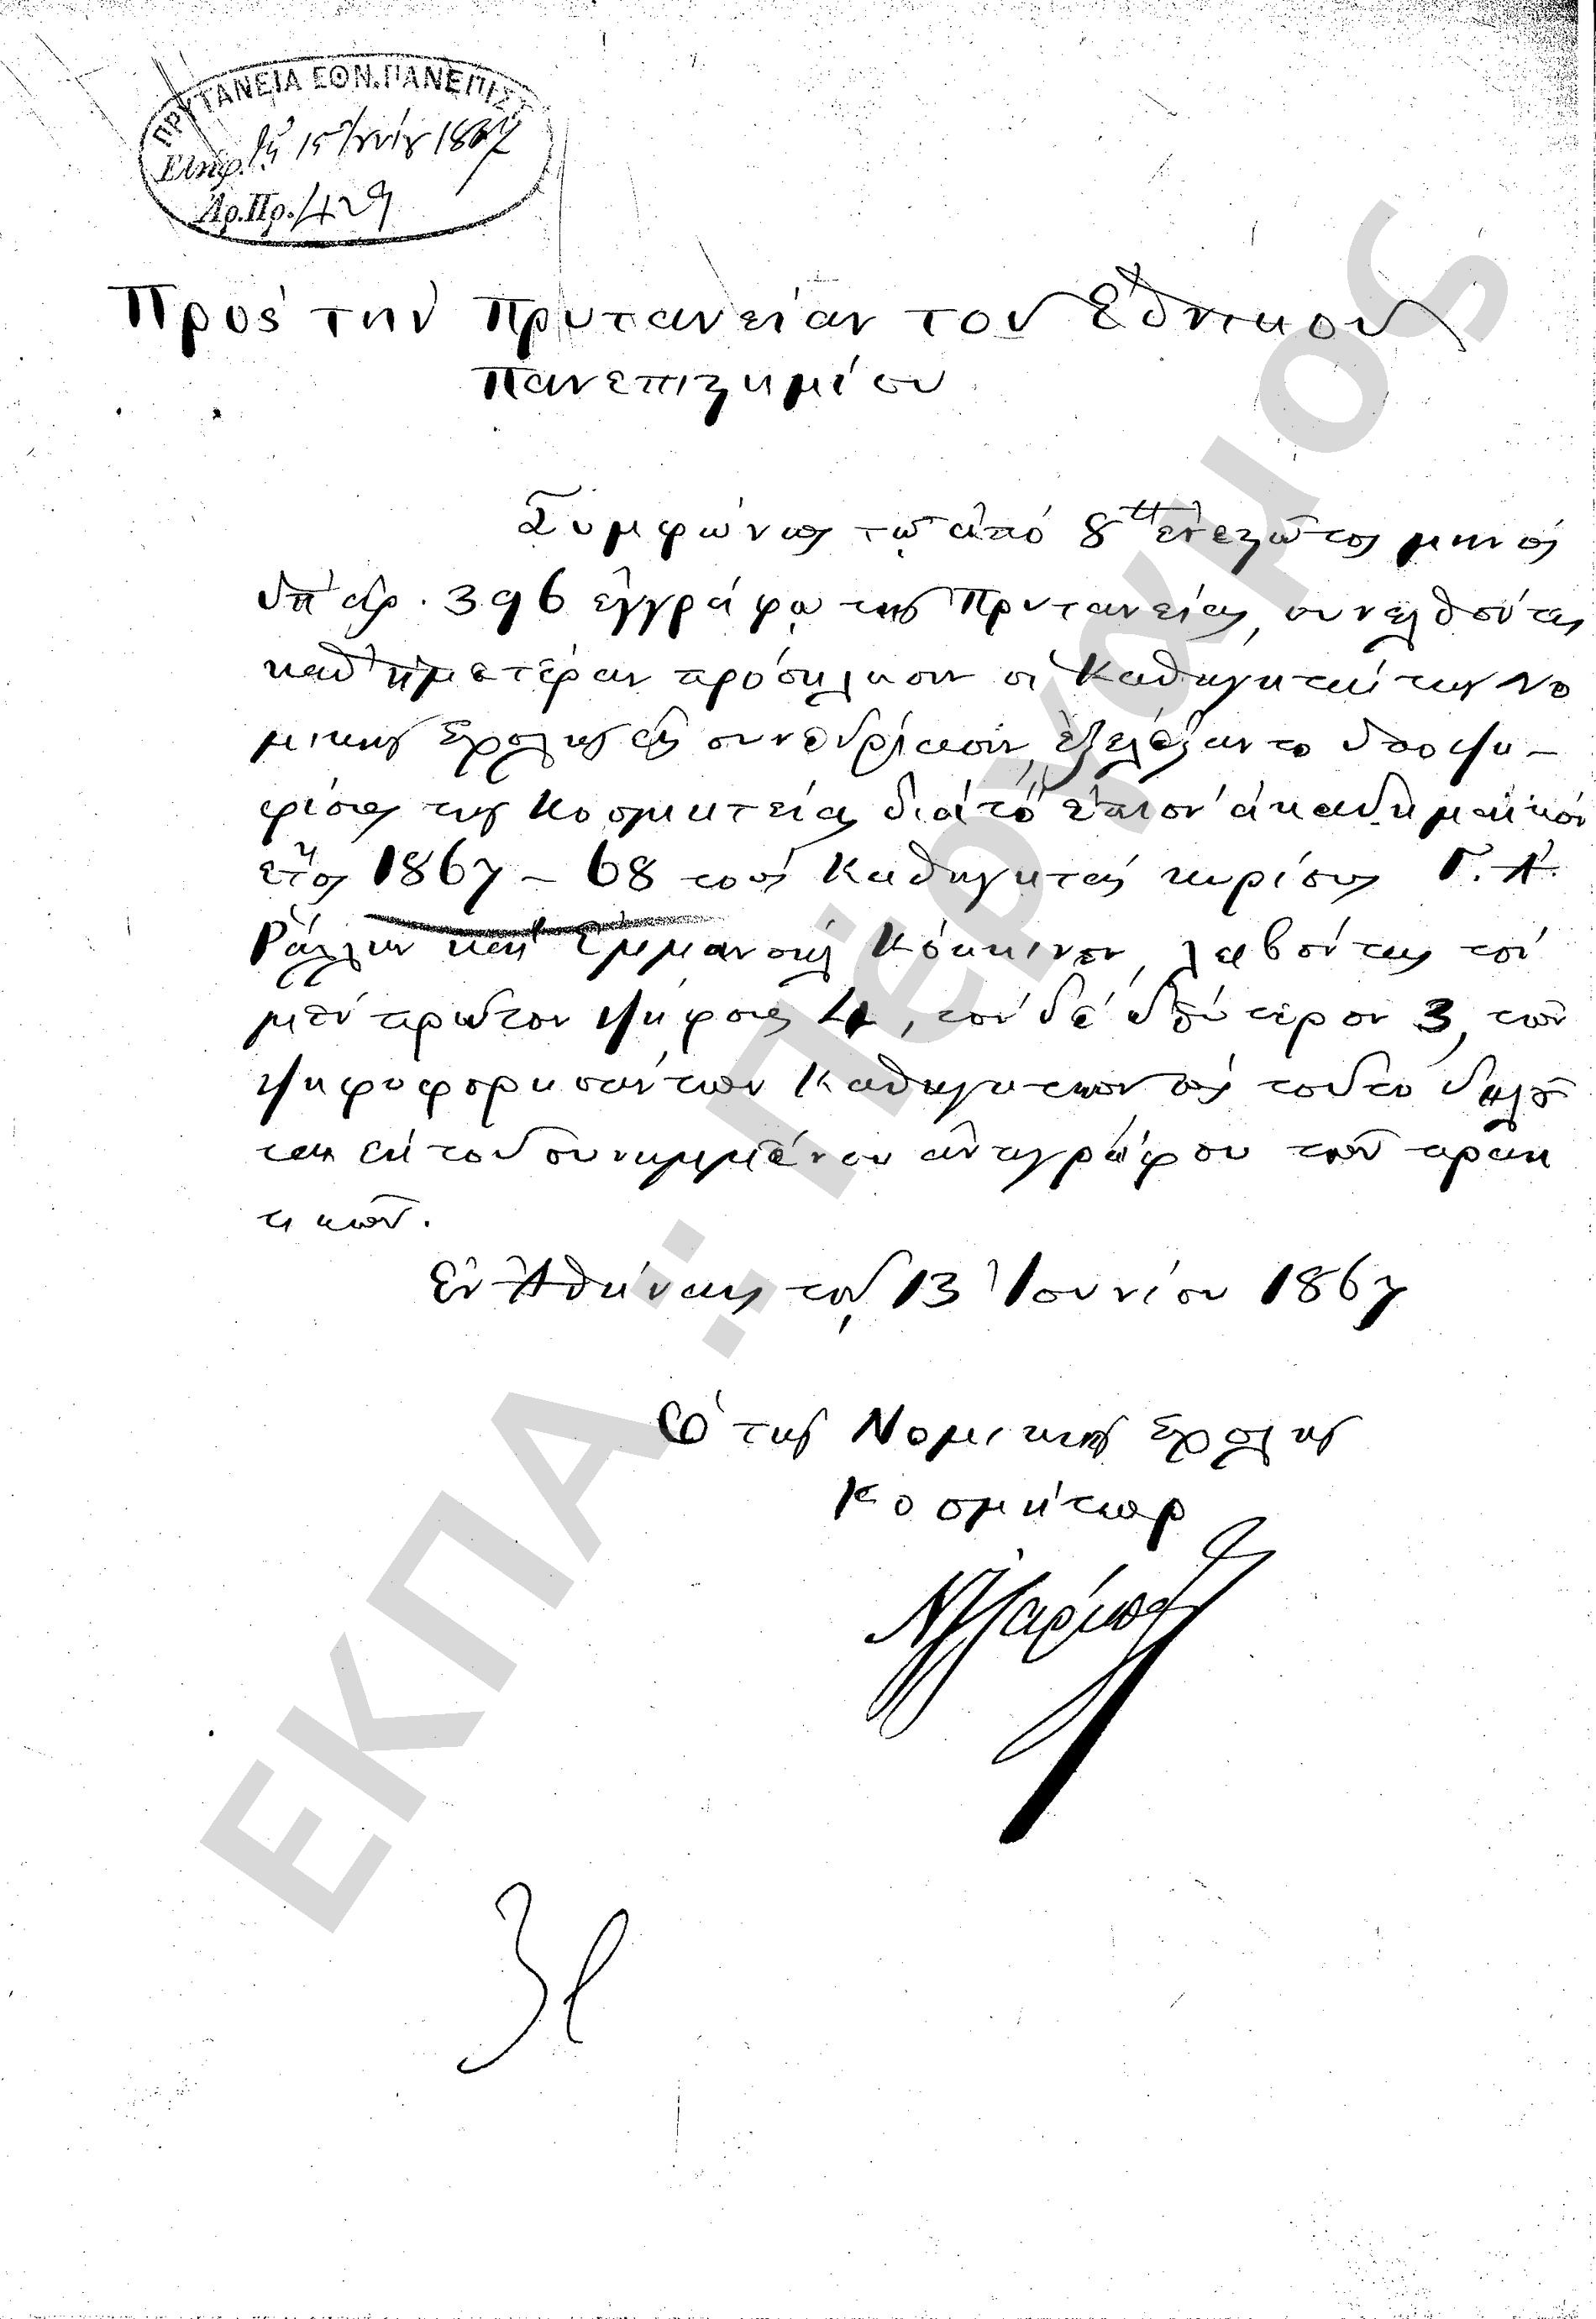 ΠΡΥΤΑΝΕΙΑ ΕΘΝ. ΠΑΝΕΠΙΣΤ
Ελήφ. τῇ 15 Ἰουνίου 1867
Αρ. Πρ. 429
Πρὸς τὴν Πρυτανείαν τοῦ Ἐθνικοῦ
Πανεπιστημίου
Συμφώνως τῷ ἀπὸ 8 ἐνεστῶτος μηνὸς
ὑπ' ἀρ. 396 ἐγγράφῳ τῆς Πρυτανείας, συνελθόντες
καθ' ἡμετέραν πρόσκλησιν οἱ Καθηγηταὶ τῆς Νο
μικῆς Σχολῆς εἰς συνεδρίασιν, ἐξελέξαντο ὑποψη-
φίους τῆς Κοσμητείας διὰ τὸ ἐπιὸν ἀκαδημαϊκὸν
ἔτος 1867 - 68 τοὺς Καθηγητὰς κυρίους Γ. Α.
Ράλλην καὶ Ἐμμανουὴλ Κόκκινον, λαβόντας τὸν
μὲν πρῶτον ψήφους 4, τὸν δὲ δεύτερον 3, τῶν
ψηφοφορησάντων Καθηγητῶν ὡς τοῦτο δηλοῦ
ται ἐκ τοῦ συνημμένου ἀντιγράφου τῶν πρακ
τικῶν.
Ἐν Ἀθήναις τῇ 13 Ἰουνίου 1867
Ὁ τῆς Νομικῆς Σχολῆς
Κοσμήτωρ
ΕΚΠΑ :: Πέργαμος